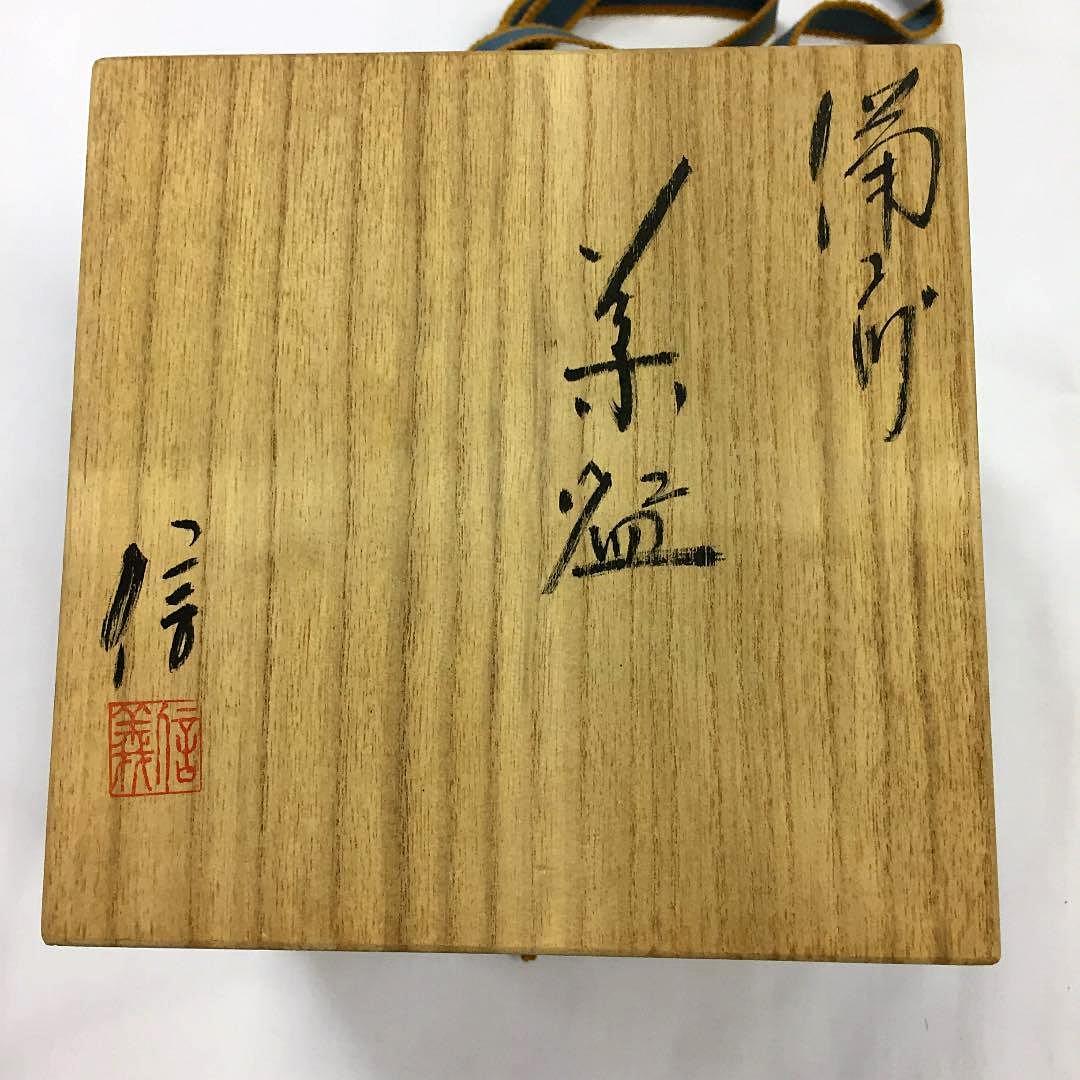 備前
茶盌
信
信義